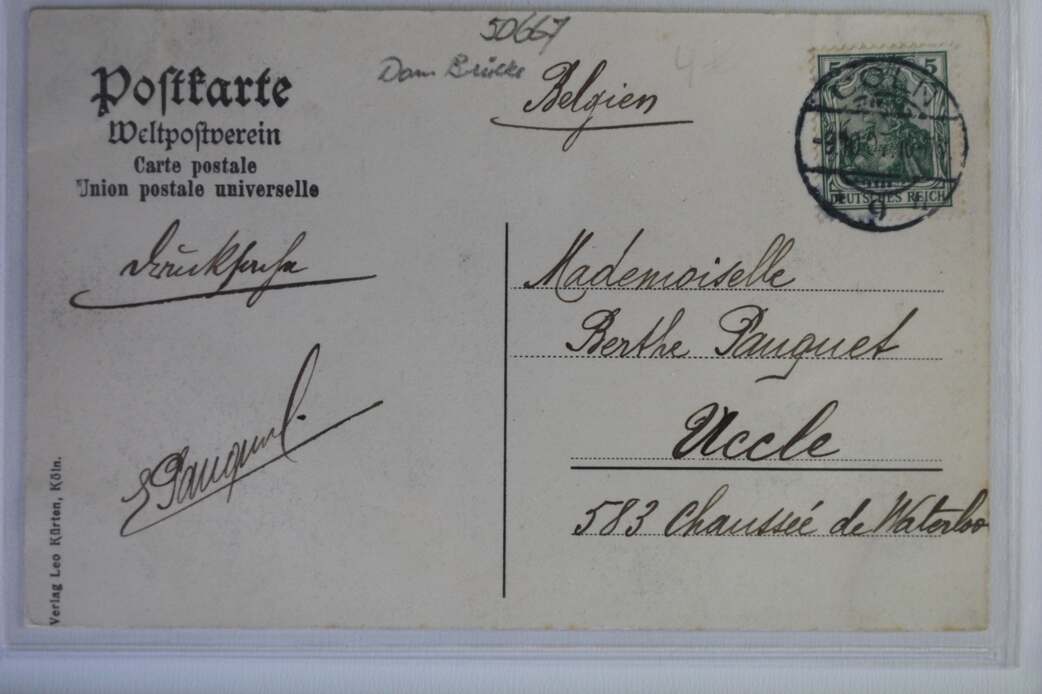 50667
Dom Brücke
Postkarte
Weltpostverein
Carte postale
Union postale universelle
Belgien
5 5
DEUTSCHES REICH
9
Drucksache
Mademoiselle
Berthe Pauquet
Uccle
583 Chaussée de Waterloo
Pauquet
Verlag Leo Kürten, Köln.